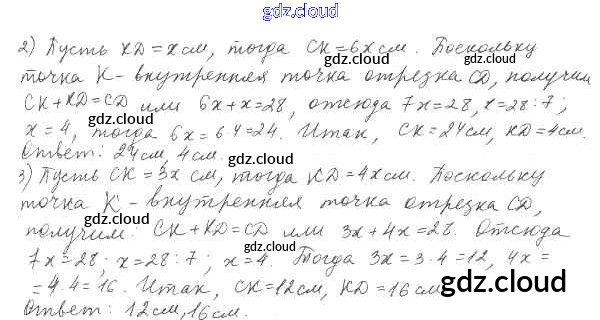 gdz.cloud
2) Пусть KD = x см, тогда CK = 6x см. Поскольку
точка K - внутренняя точка отрезка CD, получим
CK + KD = CD или 6x + x = 28, отсюда 7x = 28, x = 28 : 7;
x = 4, тогда 6x = 6·4 = 24. Итак, CK = 24 см, KD = 4 см.
Ответ: 24 см, 4 см.
3) Пусть CK = 3x см, тогда KD = 4x см. Поскольку
точка K - внутренняя точка отрезка CD,
получим: CK + KD = CD или 3x + 4x = 28. Отсюда
7x = 28; x = 28 : 7; x = 4. Тогда 3x = 3·4 = 12, 4x =
= 4·4 = 16. Итак, CK = 12 см, KD = 16 см
Ответ: 12 см, 16 см.
gdz.cloud
gdz.cloud
gdz.cloud
gdz.cloud
gdz.cloud
gdz.cloud
gdz.cloud
gdz.cloud